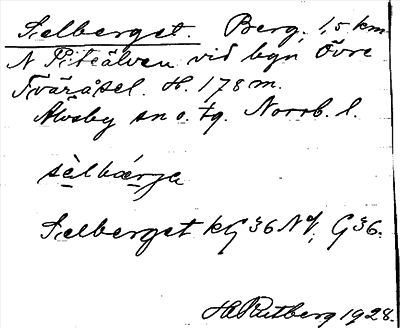 Selberget. Berg. 1,5 km
N Piteälven vid bgn Övre
Tväråsel. H. 178 m.
Älvsby sn o. tg. Norrb. l.
sèlbærja
Selberget kG 36 NV, G 36.
H. Rutberg 1928.